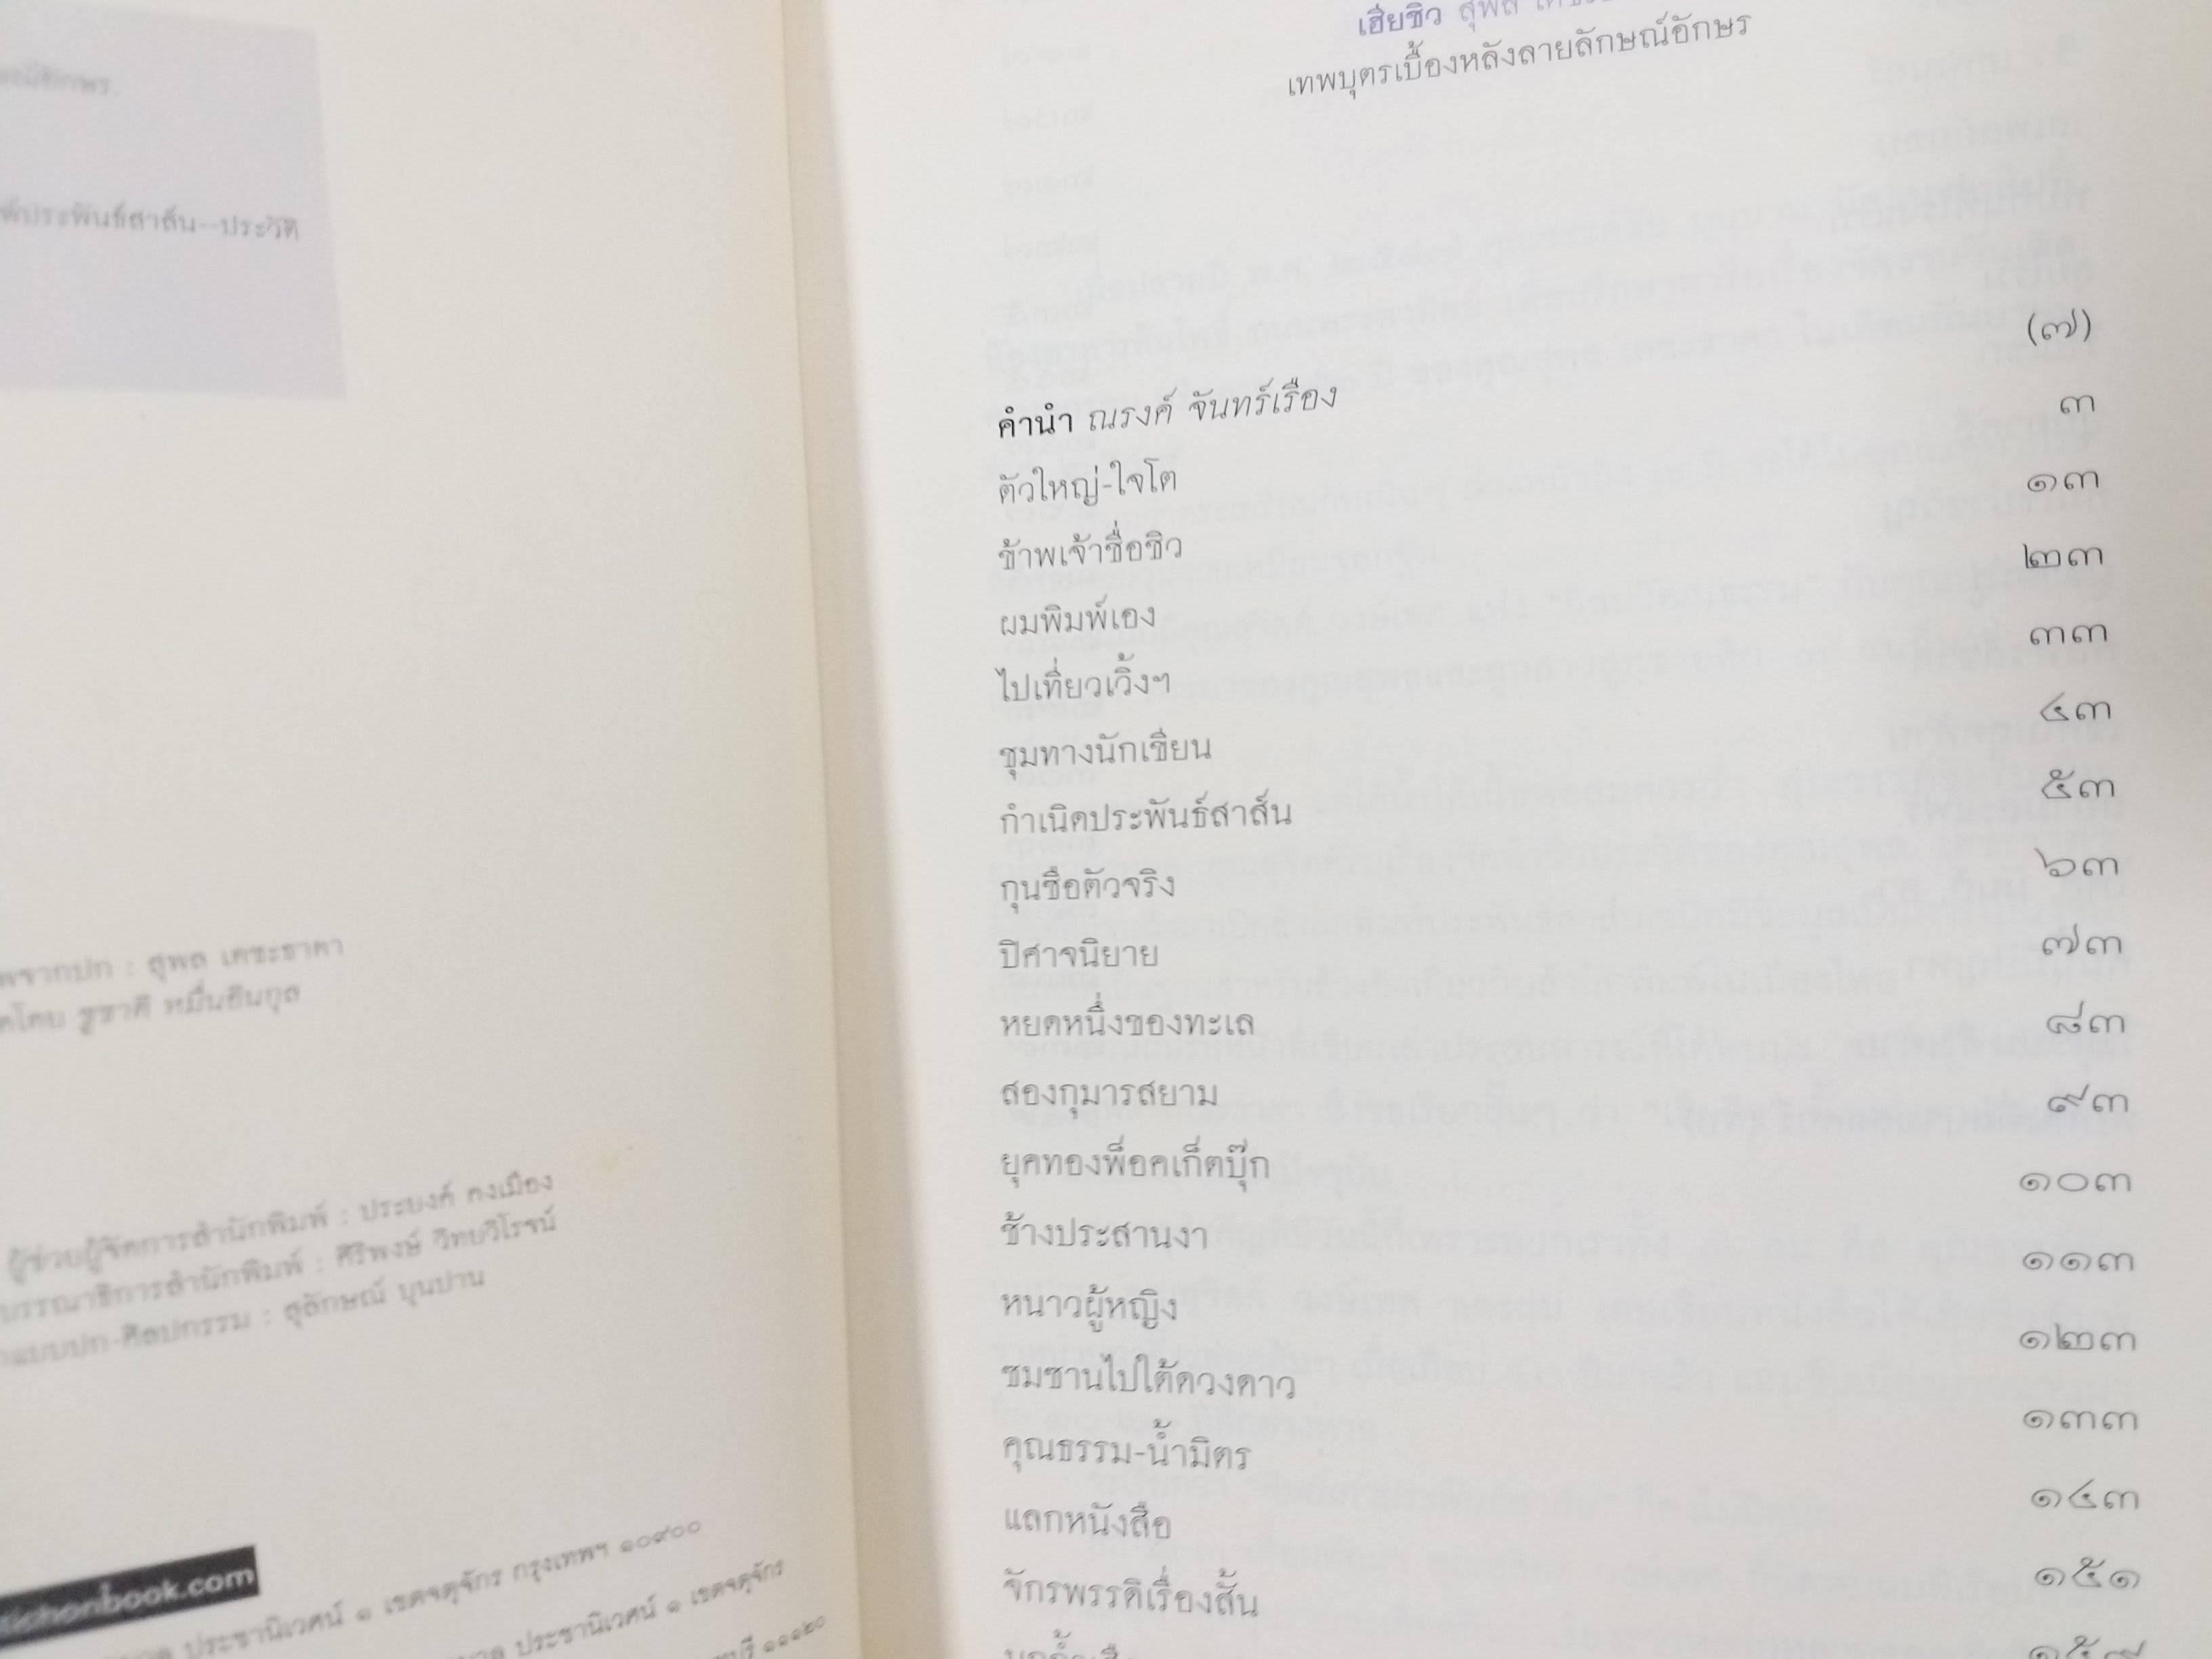 ประพันธ์สาส์น--ประวัติ
สุพล เตชะธาดา
ชูชาติ หมื่นอินกุล
ผู้ช่วยผู้จัดการสำนักพิมพ์ : ประยงค์ คงเมือง
บรรณาธิการสำนักพิมพ์ : ศิริพงษ์ วิทยวิโรจน์
แบบปก-ศิลปกรรม : สุลักษณ์ บุนปาน
chonbook.com
ประชานิเวศน์ ๑ เขตจตุจักร กรุงเทพฯ ๑๐๙๐๐
ประชานิเวศน์ ๑ เขตจตุจักร
๑๑๑๒๐
เฮียชิว สุพล
เทพบุตรเบื้องหลังลายลักษณ์อักษร
คำนำ ณรงค์ จันทร์เรือง (๗)
ตัวใหญ่-ใจโต ๓
ข้าพเจ้าชื่อชิว ๑๓
ผมพิมพ์เอง ๒๓
ไปเที่ยวเวิ้งฯ ๓๓
ชุมทางนักเขียน ๔๓
กำเนิดประพันธ์สาส์น ๕๓
กุนซือตัวจริง ๖๓
ปิศาจนิยาย ๗๓
หยดหนึ่งของทะเล ๘๓
สองกุมารสยาม ๙๓
ยุคทองพ็อคเก็ตบุ๊ก ๑๐๓
ช้างประสานงา ๑๑๓
หนาวผู้หญิง ๑๒๓
ซมซานไปใต้ดวงดาว ๑๓๓
คุณธรรม-น้ำมิตร ๑๔๓
แลกหนังสือ ๑๕๑
จักรพรรดิเรื่องสั้น ๑๕๗